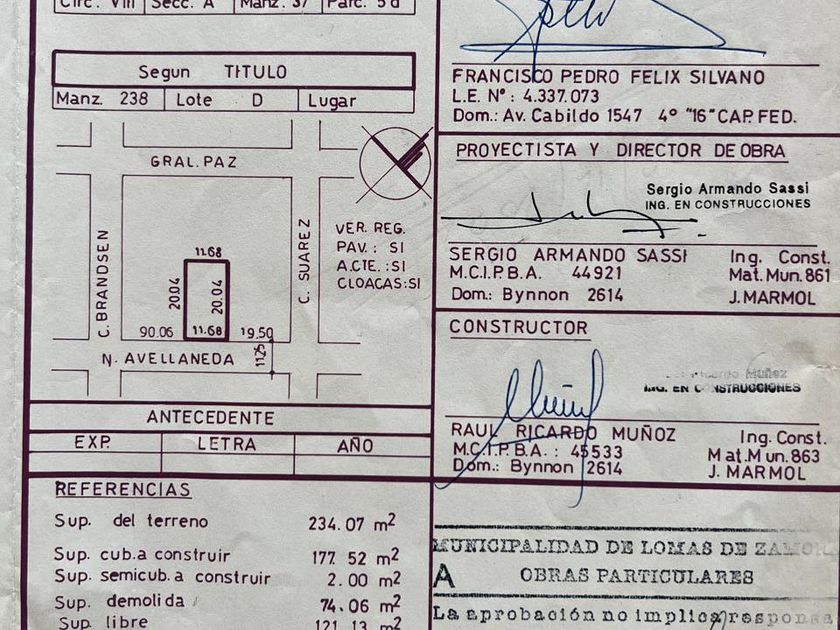 Circ. VIII Secc. A Manz. 37 Parc. 5d
Segun TITULO
Manz. 238 Lote D Lugar
GRAL. PAZ
C. BRANDSEN
C. SUAREZ
11.68
20.04
20.04
11.68
90.06
19.50
11.25
N. AVELLANEDA
VER. REG.
PAV. : SI
A.CTE. : SI
CLOACAS: SI
ANTECEDENTE
EXP. LETRA AÑO
REFERENCIAS
Sup. del terreno 234.07 m2
Sup. cub. a construir 177.52 m2
Sup. semicub. a construir 2.00 m2
Sup. demolida 74.06 m2
Sup. libre 121.13 m2
FRANCISCO PEDRO FELIX SILVANO
L.E. Nº : 4.337.073
Dom.: Av. Cabildo 1547 4º "16" CAP. FED.
PROYECTISTA Y DIRECTOR DE OBRA
Sergio Armando Sassi
ING. EN CONSTRUCCIONES
SERGIO ARMANDO SASSI Ing. Const.
M.C.I.P.B.A. 44921 Mat. Mun. 861
Dom.: Bynnon 2614 J. MARMOL
CONSTRUCTOR
Muñez
ING. EN CONSTRUCCIONES
RAUL RICARDO MUÑOZ Ing. Const.
M.C.I.P.B.A. : 45533 Mat. Mun. 863
Dom.: Bynnon 2614 J. MARMOL
MUNICIPALIDAD DE LOMAS DE ZAMO
A OBRAS PARTICULARES
La aprobación no implica respons